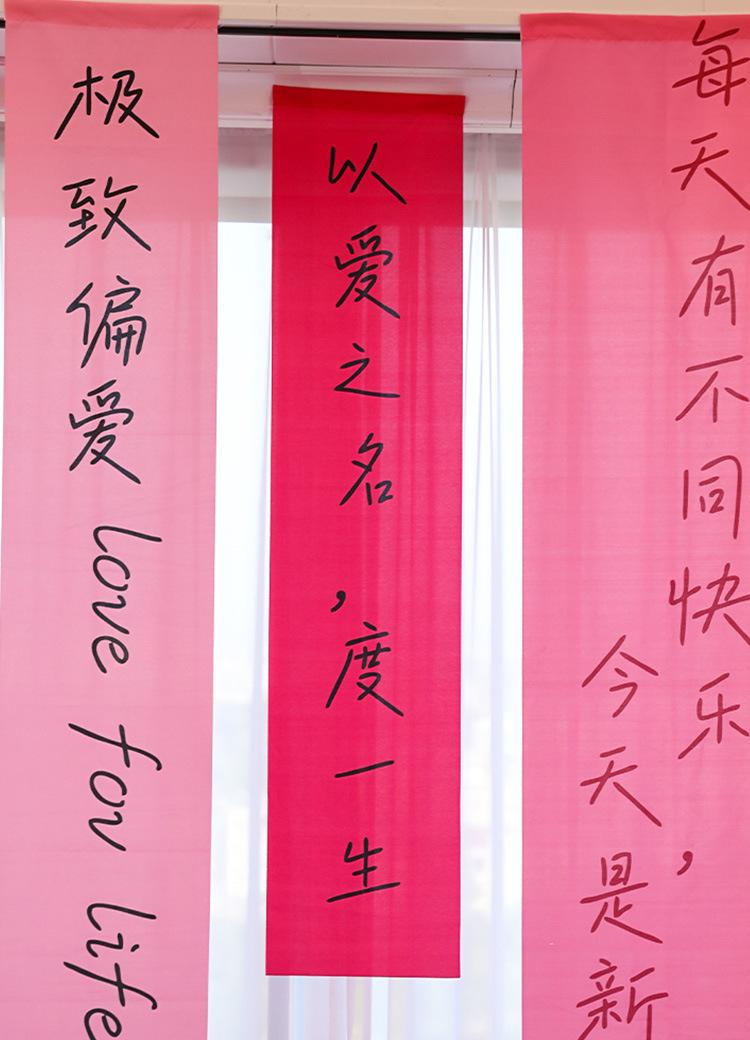 极致偏爱 love for life
以爱之名,度一生
每天有不同快乐,
今天是新